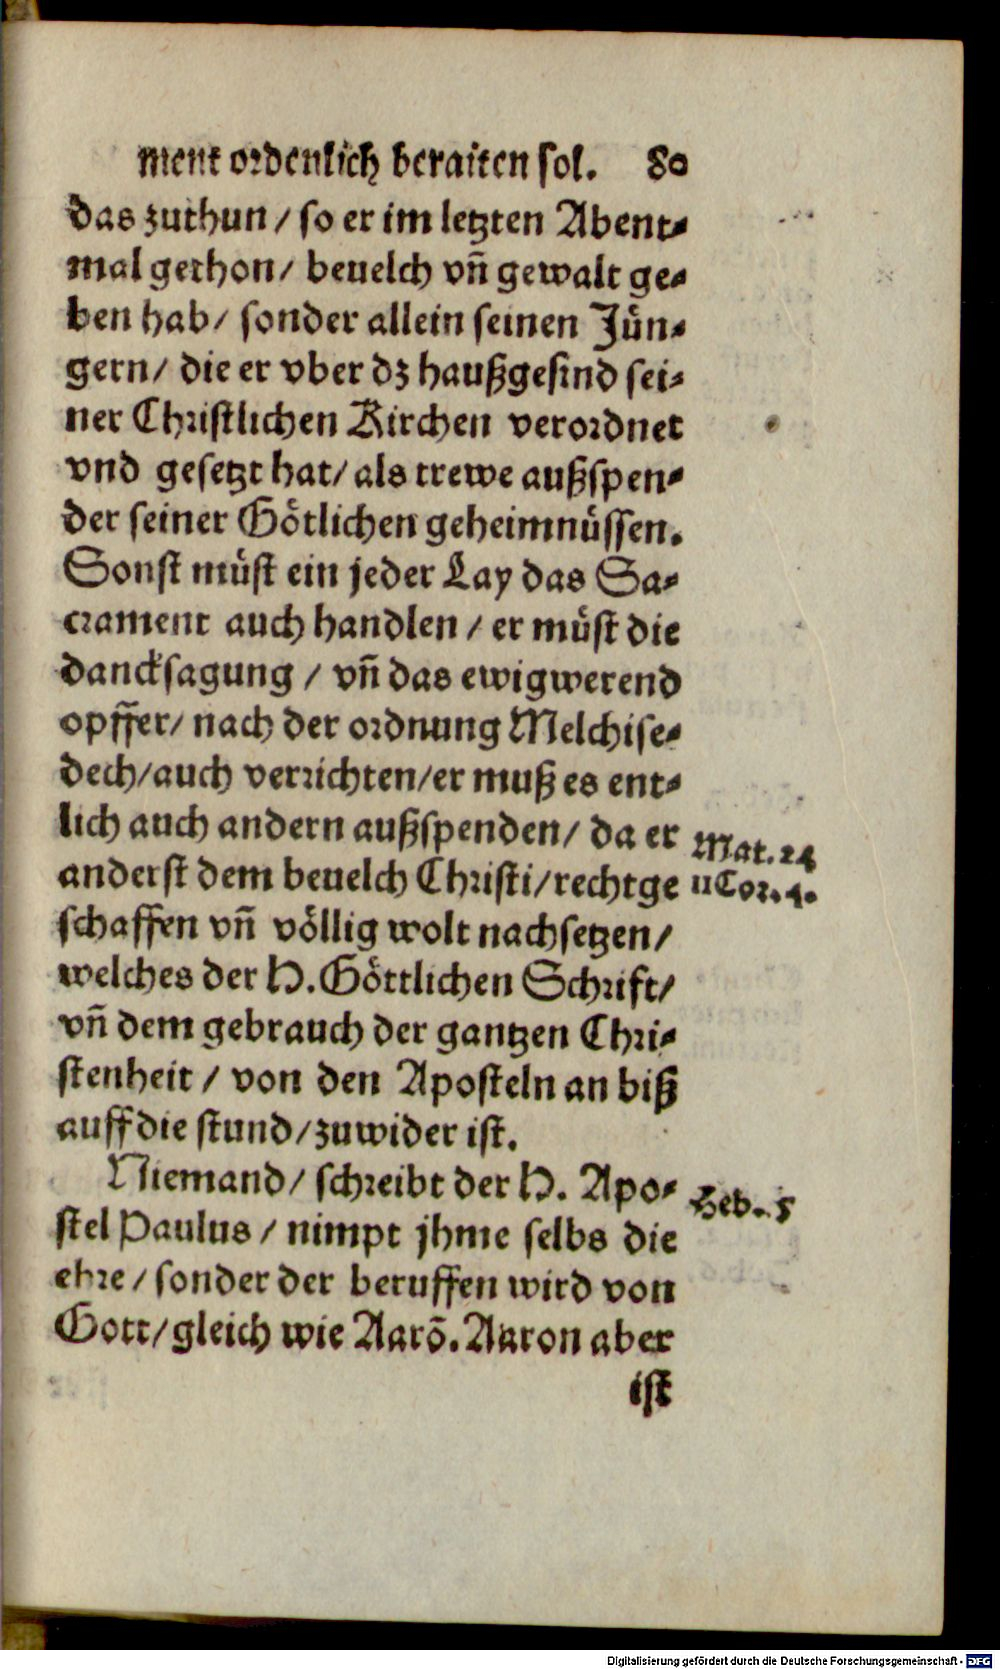 ment ordenlich beraiten sol. 80
das zuthun / so er im letzten Abent⸗
mal gethon / beuelch vñ gewalt ge⸗
ben hab / sonder allein seinen Jün⸗
gern / die er vber dz haußgesind sei⸗
ner Christlichen Kirchen verordnet
vnd gesetzt hat / als trewe außspen⸗
der seiner Götlichen geheimnüssen.
Sonst müst ein jeder Lay das Sa⸗
crament auch handlen / er müst die
dancksagung / vñ das ewigwerend
opffer / nach der ordnung Melchise⸗
dech / auch verrichten / er muß es ent⸗
lich auch andern außspenden / da er
Mat. 24
anderst dem beuelch Christi / rechtge
1 Cor. 4.
schaffen vñ völlig wolt nachsetzen /
welches der H. Göttlichen Schrift /
vñ dem gebrauch der gantzen Chri⸗
stenheit / von den Aposteln an biß
auff die stund / zuwider ist.
Niemand / schreibt der H. Apo⸗
Heb. 5
stel Paulus / nimpt jhme selbs die
ehre / sonder der beruffen wird von
Gott / gleich wie Aarō. Aaron aber
ist
Digitalisierung gefördert durch die Deutsche Forschungsgemeinschaft - DFG